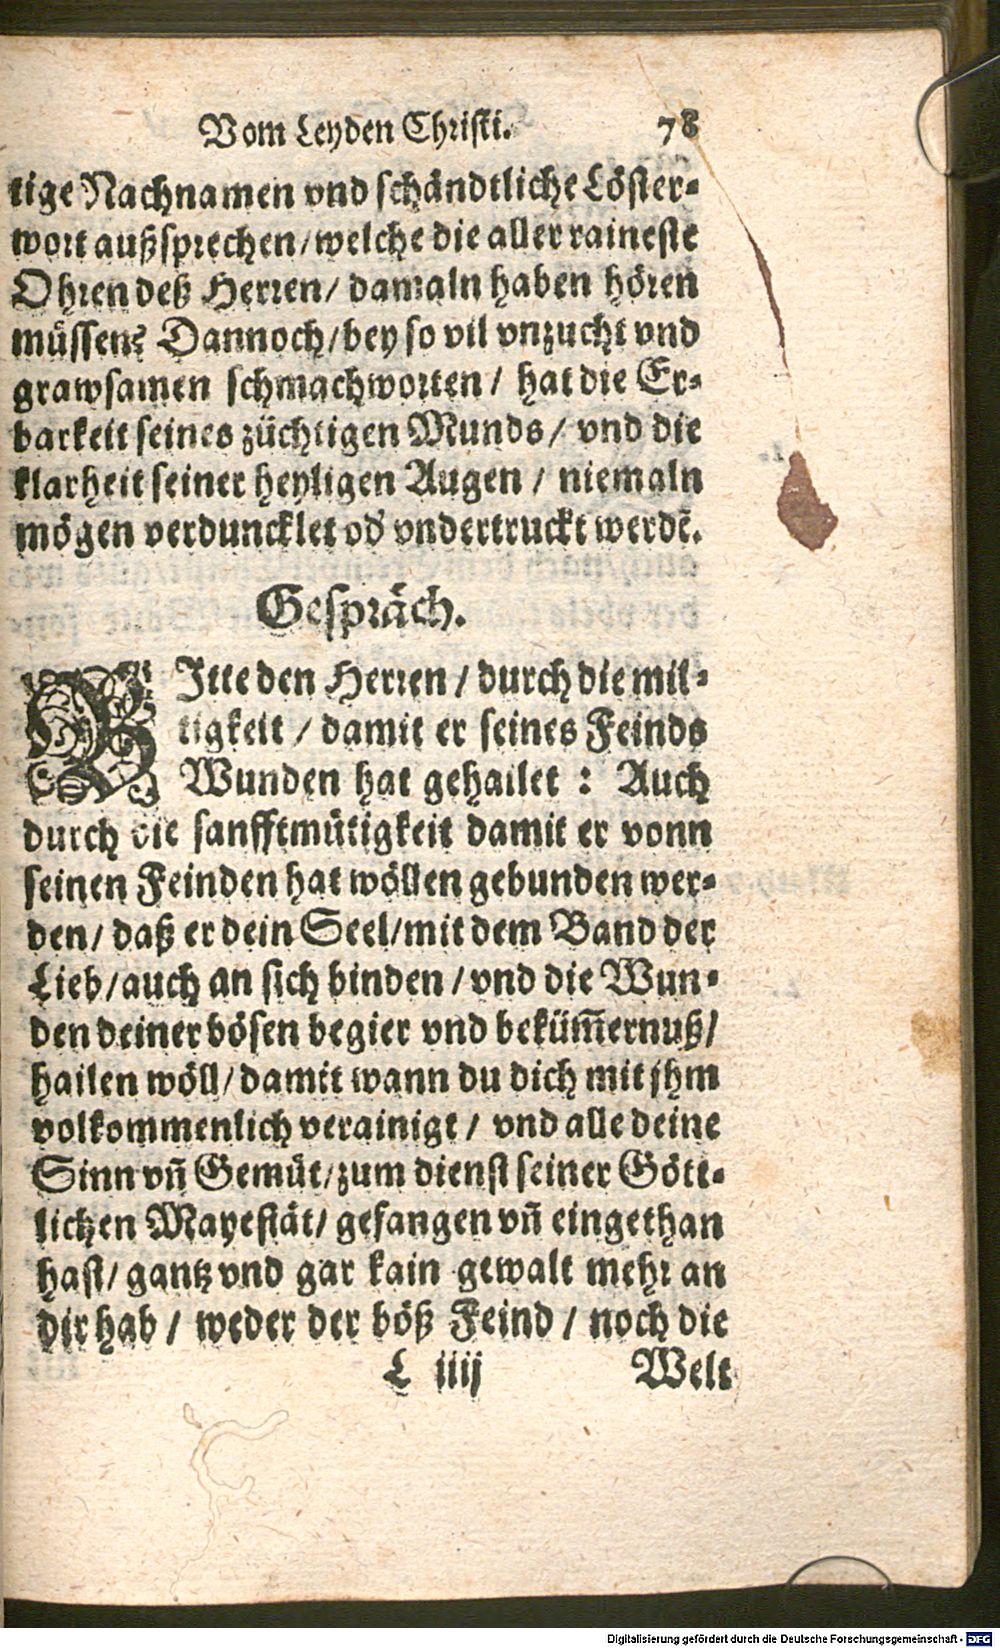 Vom Leyden Christi. 78
tige Nachnamen vnd schändtliche Löster-
wort außsprechen/welche die aller raineste
Ohren deß Herren/ damaln haben hören
müssen? Dannoch/bey so vil vnzucht vnd
grawsamen schmachworten/ hat die Er-
barkeit seines züchtigen Munds/ vnd die
klarheit seiner heyligen Augen/ niemaln
mögen verduncklet od' vndertruckt werdē.
Gespräch.
BItte den Herren/ durch die mil-
tigkeit/ damit er seines Feinds
Wunden hat gehailet: Auch
durch die sanfftmütigkeit damit er vonn
seinen Feinden hat wöllen gebunden wer-
den/ daß er dein Seel/mit dem Band der
Lieb/auch an sich binden/vnd die Wun-
den deiner bösen begier vnd bekü̅mernuß/
hailen wöll/damit wann du dich mit jhm
volkommenlich verainigt/ vnd alle deine
Sinn vn̄ Gemüt/zum dienst seiner Gött-
lichen Mayestät/ gefangen vn̄ eingethan
hast/ gantz vnd gar kain gewalt mehr an
dir hab/ weder der böß Feind/ noch die
L iiij Welt
Digitalisierung gefördert durch die Deutsche Forschungsgemeinschaft - DFG